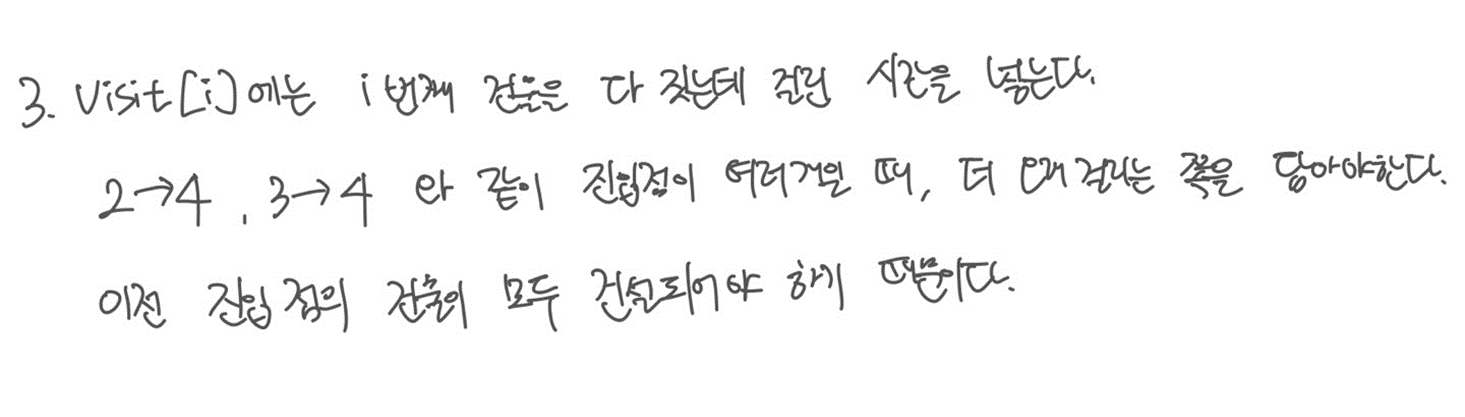 3. Visit[i]에는 i번째 건물을 다 짓는데 걸린 시간을 넣는다.
2→4, 3→4 와 같이 진입점이 여러개일 때, 더 오래걸리는 쪽을 담아야한다.
이전 진입점의 건물이 모두 건설되어야 하기 때문이다.